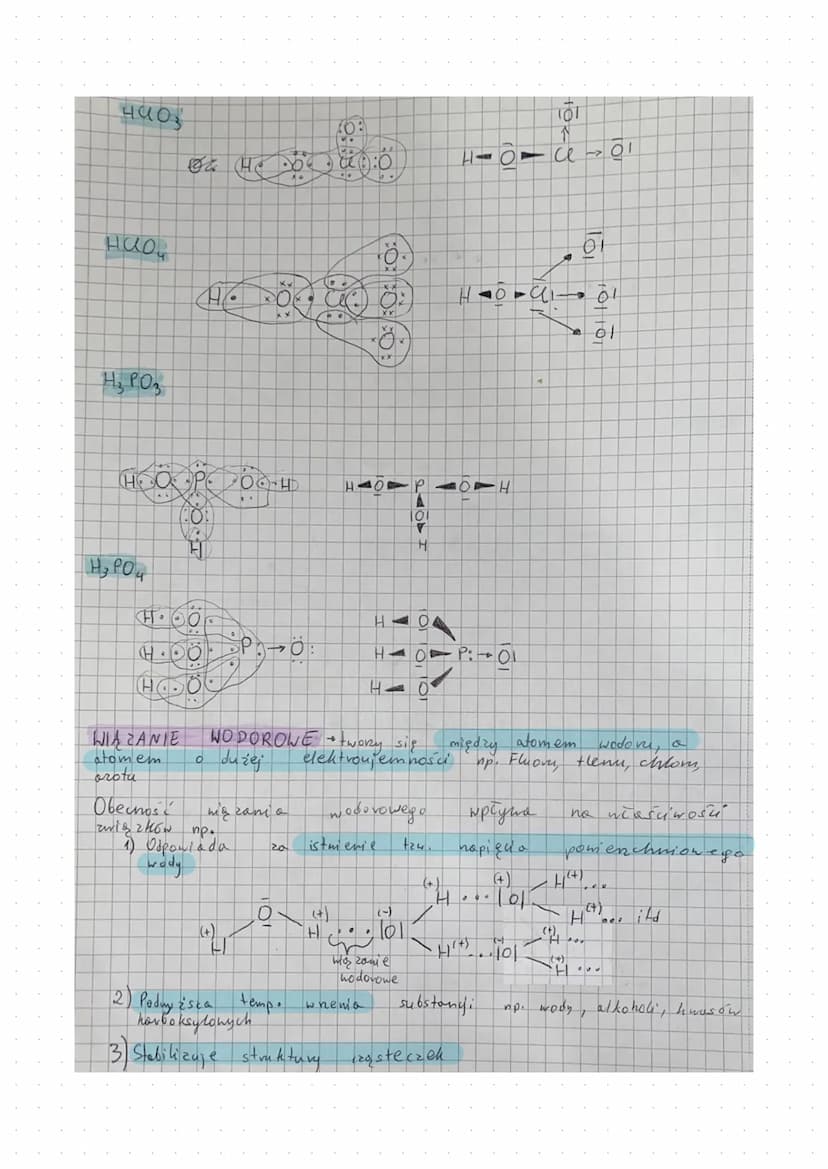 HClO₃
H O Cl O O
H - O - Cl → O
O
HClO₄
H O Cl O O O
H O Cl → O O O
H₃PO₃
H O P O H
O
H
H O P O H
O
H
H₃PO₄
H O
H O P → O
H O
H O
H O P: → O
H O
WIĄZANIE WODOROWE → tworzy się między atomem wodoru, a
atomem o dużej elektroujemności np. Fluoru, tlenu, chloru,
azotu
Obecność wiązania wodorowego wpływa na właściwości
związków np.
1) Odpowiada za istnienie tzw. napięcia powierzchniowego
wody
(+) H O (+) H ... (-) |O| (+) H ... (+) |O| H(+)...
H(+)... itd
H(+)... (-) |O| (+) H ...
(+) H ...
wiązanie
wodorowe
2) Podwyższa temp. wrzenia substancji np. wody, alkoholi, kwasów
karboksylowych
3) Stabilizuje struktury cząsteczek